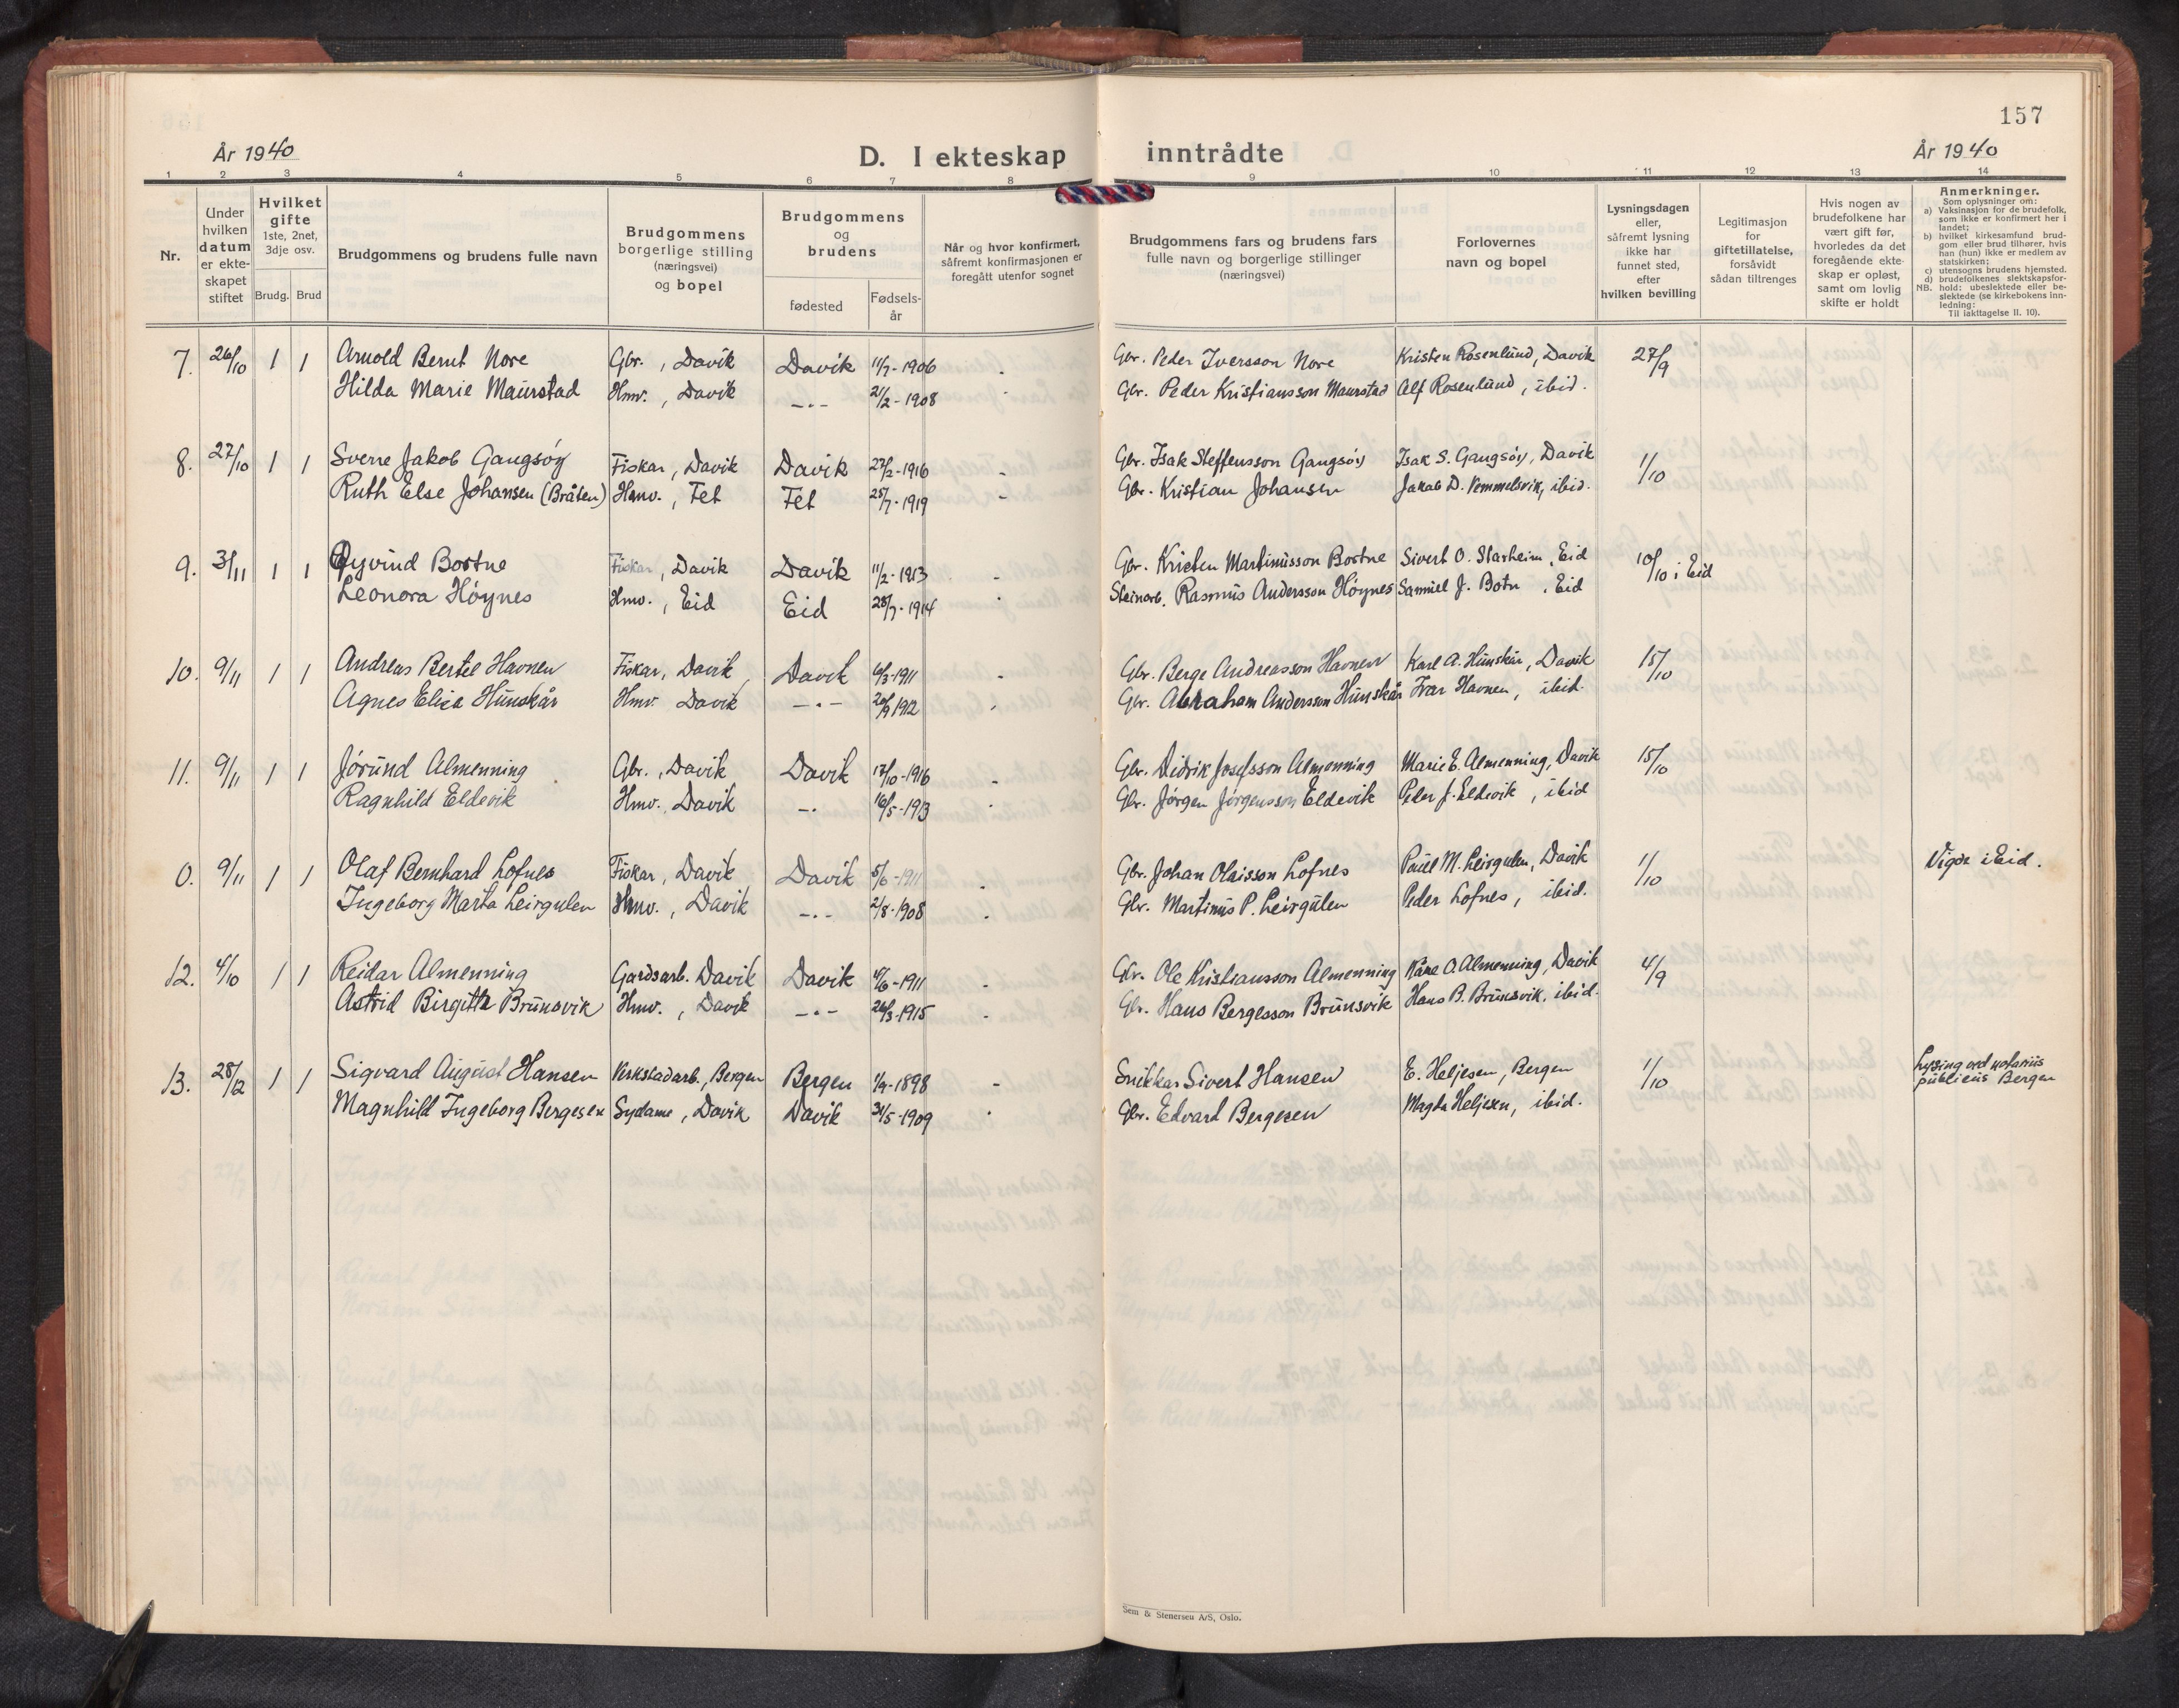 157
År 1940
D. I ekteskap inntrådte
År 1940
1 2 3 4 5 6 7 8 9 10 11 12 13 14
Nr.
Under hvilken datum er ekteskapet stiftet
Hvilket gifte 1ste, 2net, 3dje osv.
Brudg. Brud
Brudgommens og brudens fulle navn
Brudgommens borgerlige stilling (næringsvei) og bopel
Brudgommens og brudens
fødested
Fødselsår
Når og hvor konfirmert, såfremt konfirmasjonen er foregått utenfor sognet
Brudgommens fars og brudens fars fulle navn og borgerlige stillinger (næringsvei)
Forlovernes navn og bopel
Lysningsdagen eller, såfremt lysning ikke har funnet sted, efter hvilken bevilling
Legitimasjon for giftetillatelse, forsåvidt sådan tiltrenges
Hvis nogen av brudefolkene har vært gift før, hvorledes da det foregående ekteskap er opløst, samt om lovlig skifte er holdt
Anmerkninger.
Som oplysninger om:
a) Vaksinasjon for de brudefolk, som ikke er konfirmert her i landet;
b) hvilket kirkesamfund brudgom eller brud tilhører, hvis han (hun) ikke er medlem av statskirken;
c) utensogns brudens hjemsted.
d) brudefolkenes slektskapsforhold: ubeslektede eller beslektede (se kirkebokens innledning:
NB. Til iakttagelse II. 10).
7. 26/10 1 1 Arnold Bernt Nore Gbr., Davik Davik 11/7-1906 - Gbr. Peder Iversson Nore Kristen Rosenlund, Davik 27/9
Hilda Marie Maurstad Hmv., Davik -.- 21/2-1908 - Gbr. Peder Kristiansson Maurstad Alf Rosenlund, ibid.
8. 27/10 1 1 Sverre Jakob Gangsøy Fiskar, Davik Davik 27/2-1916 - Gbr. Isak Steffensson Gangsøy Isak S. Gangsøy, Davik 1/10
Ruth Else Johansen (Bråten) Hmv., Fet Fet 25/7-1919 - Gbr. Kristian Johansen Jakob D. Vemmelsvik, ibid.
9. 3/11 1 1 Øyvind Bortne Fiskar, Davik Davik 11/2-1913 - Gbr. Kristen Martinusson Bortne Sivert O. Starheim, Eid 10/10 i Eid
Leonora Høynes Hmv., Eid Eid 28/7-1914 Steinarb. Rasmus Andersson Høynes Samuel J. Botn, Eid
10. 9/11 1 1 Andreas Bertel Havnen Fiskar, Davik Davik 6/3-1911 - Gbr. Berge Andreasson Havnen Karl A. Hunskår, Davik 15/10
Agnes Elisa Hunskår Hmv. Davik -.- 20/9 1912 Gbr. Abraham Andersson Hunskår Ivar Havnen, ibid.
11. 9/11 1 1 Jørund Almenning Gbr., Davik Davik 17/10-1916 - Gbr. Didrik Josefsson Almenning Marie E. Almenning, Davik 15/10
Ragnhild Eldevik Hmv. Davik -.- 16/5-1913 Gbr. Jørgen Jørgensson Eldevik Peder J. Eldevik, ibid
0. 9/11 1 1 Olaf Bernhard Lofnes Fiskar, Davik Davik 5/6-1911 - Gbr. Johan Olaisson Lofnes Paul M. Leirgulen, Davik 1/10 Vigde i Eid.
Ingeborg Marta Leirgulen Hmv., Davik -.- 2/8-1908 Gbr. Martinus P. Leirgulen Peder Lofnes, ibid.
12. 4/10 1 1 Reidar Almenning Gardsarb. Davik Davik 4/6-1911 - Gbr. Ole Kristiansson Almenning Kåre O. Almenning, Davik 4/9
Astrid Birgitta Brunsvik Hmv., Davik -.- 26/3-1915 - Gbr. Hans Bergesson Brunsvik Hans B. Brunsvik, ibid.
13. 28/12 1 1 Sigvard August Hansen Verkstadarb., Bergen Bergen 1/9-1898 - Snikkar Sivert Hansen E. Heljesen, Bergen 1/10 Lysing ved notarius publicus Bergen
Magnhild Ingeborg Bergesen Sydame, Davik Davik 31/5-1909 Gbr. Edvard Bergesen Magda Heljesen, ibid.
Sem & Stenersen A/S, Oslo.